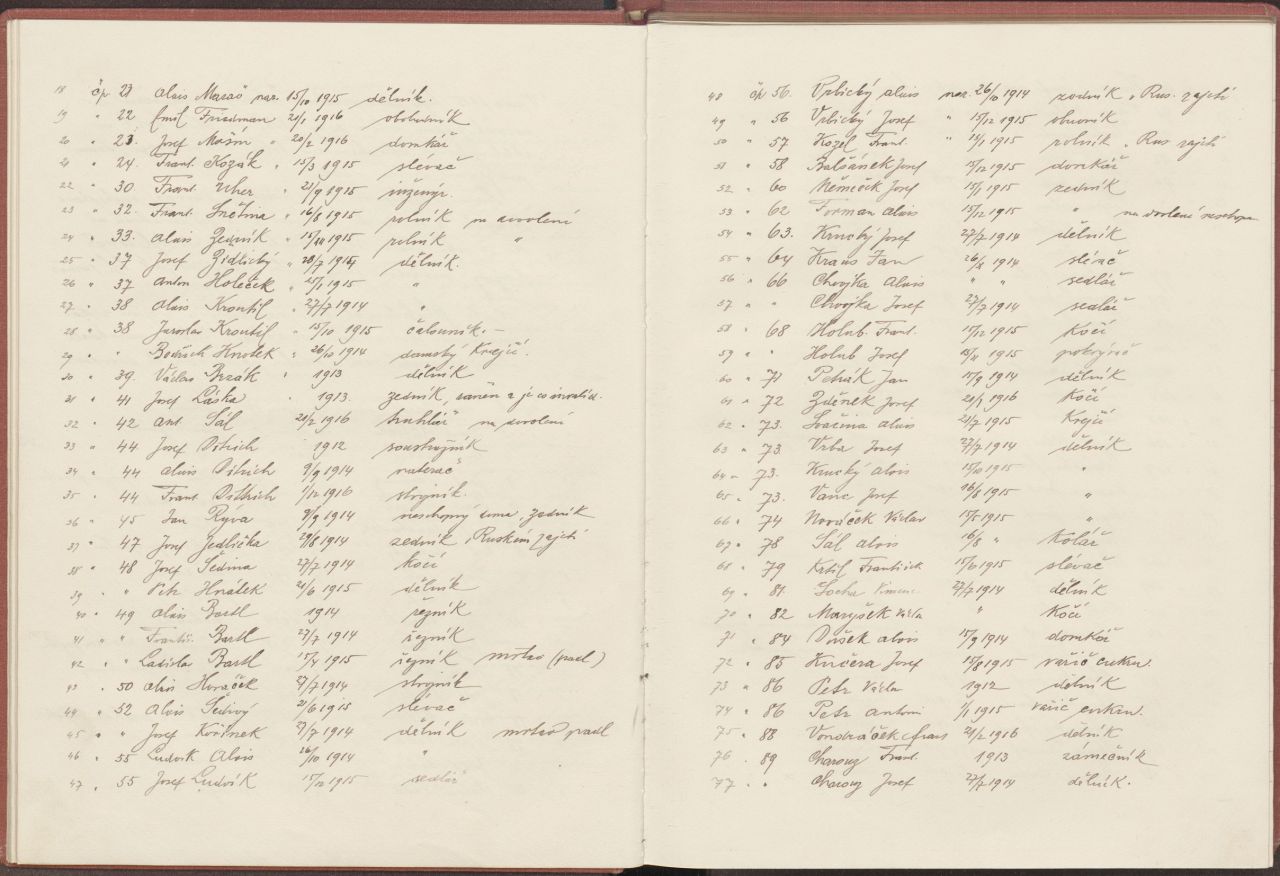 18 čp 21 Alois Maras nar. 15/10 1915 dělník.
19 " 22 Emil Friedman 21/1 1916 obchodník
20 " 23 Josef Mašín " 20/2 1916 domkář
21 " 24. Frant. Kozák " 15/3 1915 slévač
22 " 30 Frant. Uher " 21/9 1915 inženýr.
23 " 32. Frant. Snětina " 16/8 1915 rolník na dovolení
24 " 33. Alois Zedník " 15/ 1915 rolník "
25 " 37 Josef Židlický " 28/7 1914 dělník.
26 " 37 Anton Holeček " 15/1 1915 "
27 " 38 Alois Kroutil " 27/7 1914 "
28 " 38 Jaroslav Kroutil " 15/10 1915 čalouník.-
29 " " Bedřich Hnolek " 26/10 1914 damský Krejčí.
30 " 39. Václav Brzák " 1913 dělník
31 " 41 Josef Láska " 1913. zedník, raněn a je co invalid.
32 " 42 Ant. Sál 21/2 1916 truhlář na dovolení
33 " 44 Josef Ditrich 1912 soustružník
34 " 44 Alois Ditrich 9/9 1914 natěrač
35 " 44 Frant. Dittrich 1/12 1916 strojník.
36 " 45 Jan Rýva 9/9 1914 neschopný doma, zedník
37 " 47 Josef Jedlička 29/8 1914 zedník, Ruském zajetí
38 " 48 Josef Šedina 27/7 1914 Kočí
39 " " Petr Hnátek 21/6 1915 dělník
40 " 49 Alois Bartl 1914 řezník
41 " " Františ. Bartl 27/7 1914 řezník
42 " " Ladislav Bartl 15/4 1915 řezník mrtev (padl)
43 " 50 Alois Horáček 27/7 1914 strojník
44 " 52 Alois Šedivý 21/6 1915 slévač
45 " " Josef Kořínek 27/7 1914 dělník mrtev padl
46 " 55 Ludvík Alois 26/10 1914 "
47 " 55 Josef Ludvík 15/12 1915 sedlář
48 čp 56. Vrbický Alois nar. 26/10 1914 zedník v Rus. zajetí
49 " 56 Vrbický Josef " 15/12 1915 obuvník
50 " 57 Kozel Frant. " 15/1 1915 rolník v Rus zajetí
51 " 58 Balšánek Josef 15/12 1915 domkář
52 " 60 Němeček Josef 15/1 1915 zedník
53 " 62 Forman Alois 15/12 1915 " na dovolení neschopen
54 " 63. Krucký Josef 27/7 1914 dělník
55 " 64 Kraus Jan 26/ 1914 slévač
56 " 66 Chvojka Alois " " sedlář
57 " " Chvojka Josef 27/7 1914 sedlář
58 " 68 Holub Frant. 15/12 1915 Kočí
59 " " Holub Josef 15/11 1915 pokrývač
60 " 71 Petrák Jan 15/9 1914 dělník
61 " 72 Zděnek Josef 21/1 1916 Kočí
62 " 73. Svačina Alois 21/7 1915 Krejčí
63 " 73. Vrba Josef 27/7 1914 dělník
64 " 73. Krucký Alois 15/10 1915 "
65 " 73. Vanc Josef 16/8 1915 "
66 " 74 Nováček Václav 15/5 1915 "
67 " 78 Sál Alois 16/8 " Kolář
68 " 79 Krtil František 15/6 1915 slévač
69 " 81. Socha Vincenc 27/7 1914 dělník
70 " 82 Maryšek Václav " Kočí
71 " 84 Dušek Alois 15/9 1914 domkář
72 " 85 Kučera Josef 15/8 1915 vařič cukru.
73 " 86 Petr Václav 1912 dělník
74 " 86 Petr Antonín 1/1 1915 vařič cukru.
75 " 88 Vondráček Frant 21/2 1916 dělník
76 . 89 Charouz Frant. 1913 zámečník
77 . " Charouz Josef 27/7 1914 dělník.